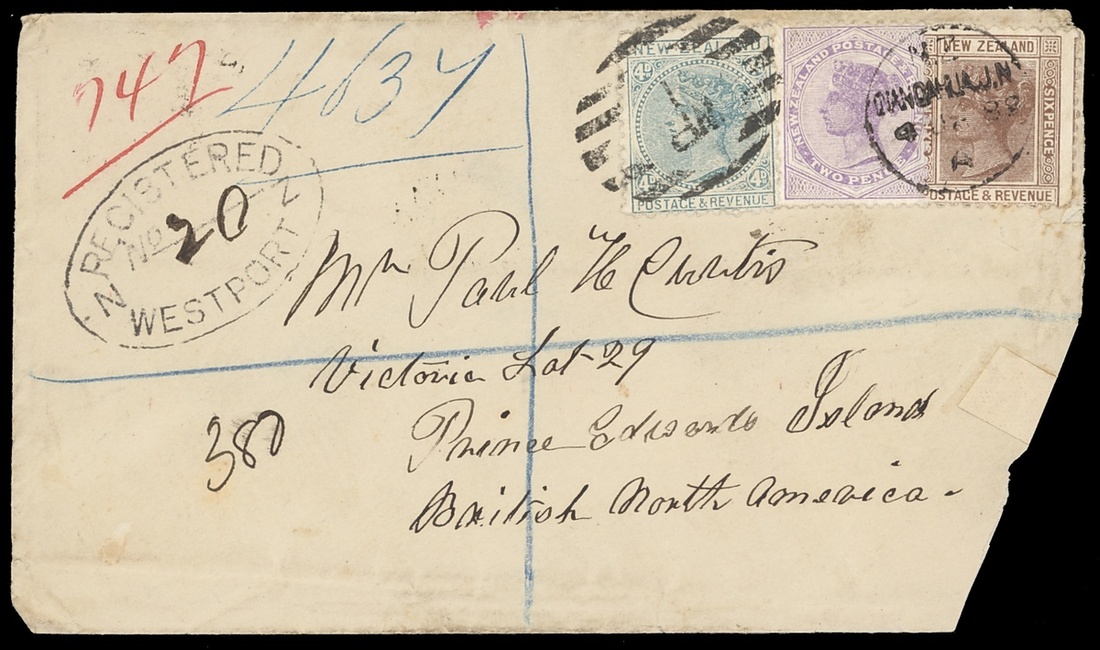 747
4637
REGISTERED
No 20
N Z
WESTPORT
NEW ZEALAND
4D
4D
POSTAGE & REVENUE
NEW ZEALAND POSTAGE
TWO PENCE
NEW ZEALAND
SIX PENCE
POSTAGE & REVENUE
A
Mr Paul H Curtis
Victoria Lot 29
Prince Edwards Island
British North America
380